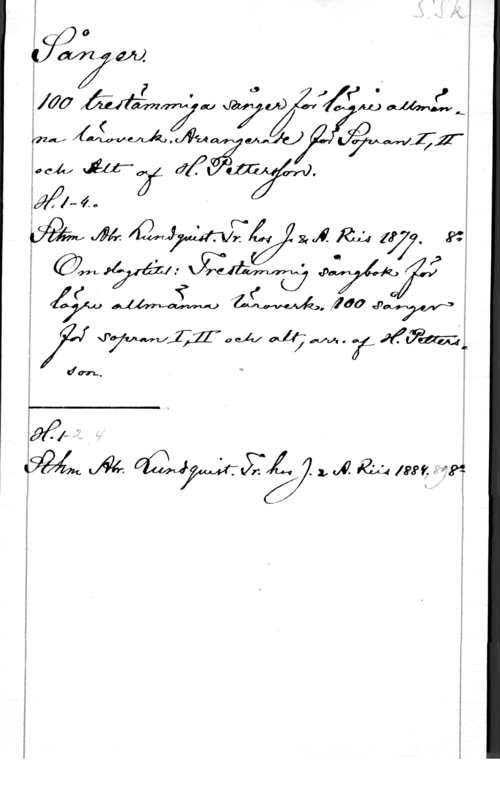 S.Sk.
Sånger.
100 trestämmiga sånger för lägre allmän-
na läroverk. Arrangerade för Sopran I, II
och Alt af H. Pettersson.
H. 1-4.
Sthm Abr. Lundquist. Tr. hos J. & A. Riis 1879. 8º
Omslagstitel: Trestämmig sångbok för
lägre allmänna läroverk. 100 sånger
för sopran I, II och alt, arr. af H. Petters-
son.
H. 1-2, 4
Sthm Abr. Lundquist. Tr. hos J. & A. Riis 1884, 89 8º